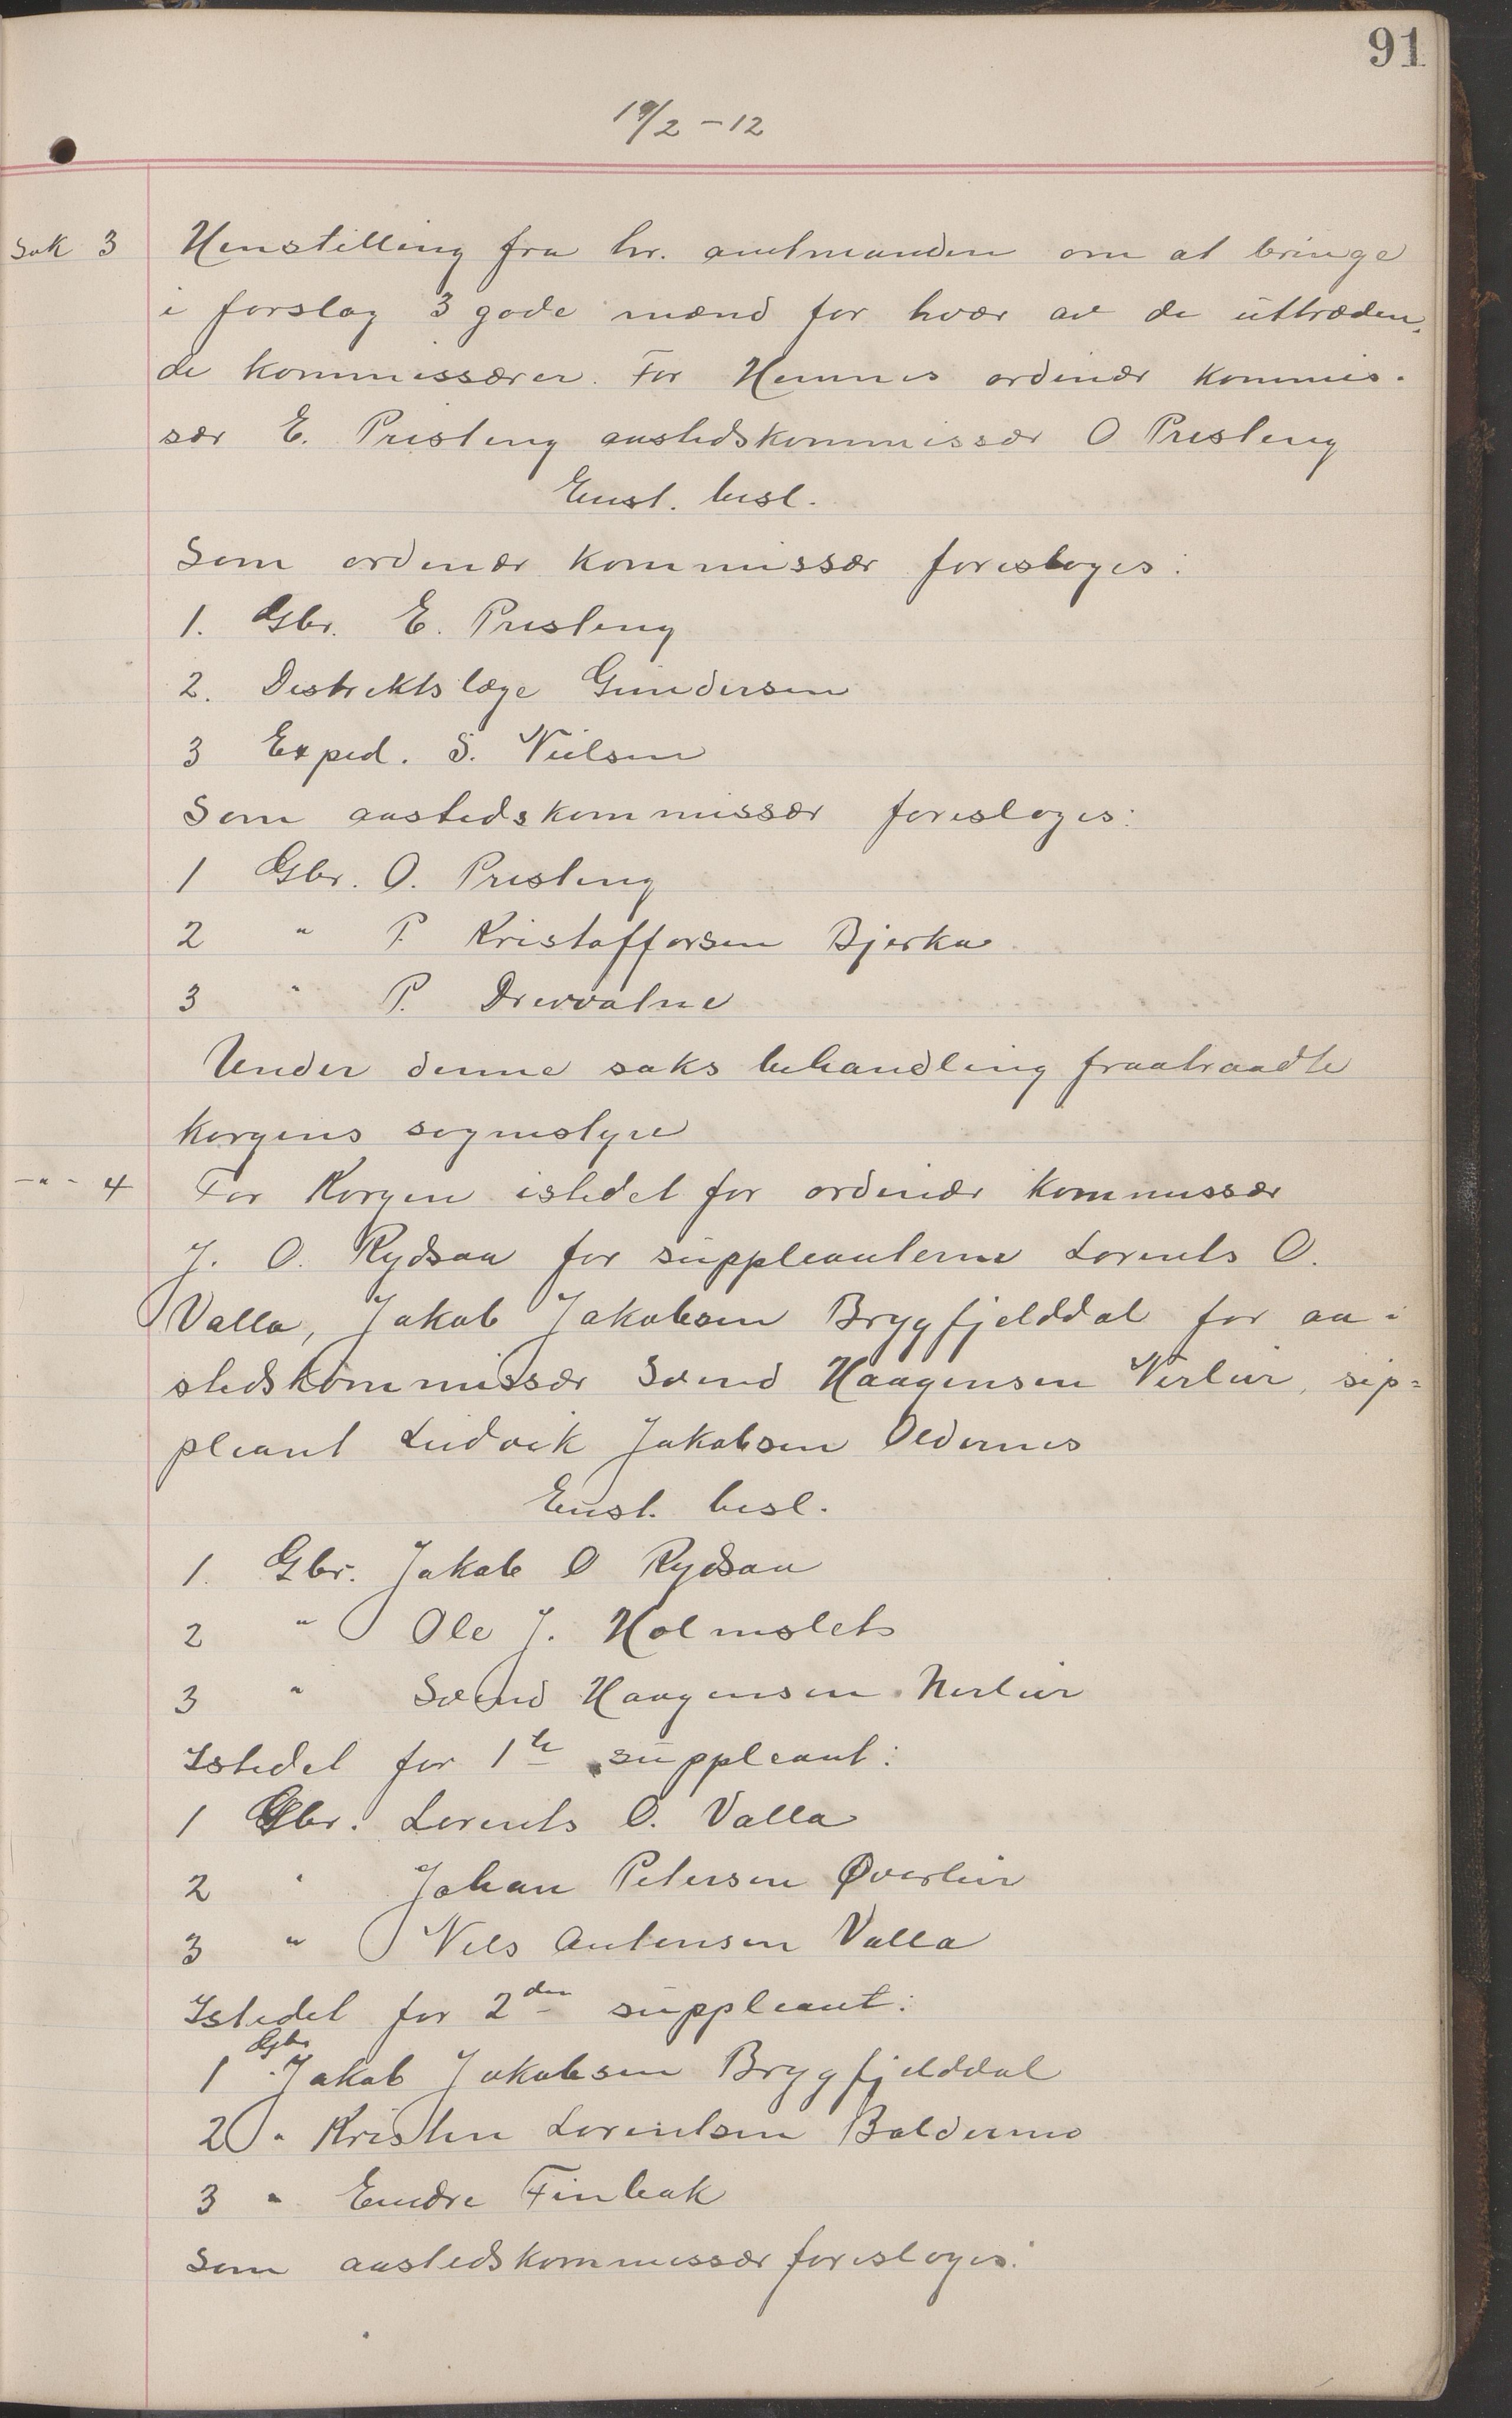 91
19/2 - 12
Sak 3 Henstilling fra hr. amtmanden om at bringe
i forslag 3 gode mænd for hvær av de uttræden-
de kommissærer. For Hemnes ordinær kommis-
sær E. Presteng aastedskommissær O Presteng
Enst. besl.
Som ordinær kommissær foresloges:
1. Gbr. E. Presteng
2. Distriktslæge Gundersen
3 Exped. S. Nielsen
Som aastedskommissær foresloges:
1 Gbr. O. Presteng
2 " P. Kristoffersen Bjerka
3 " P. Drevvatne
Under denne saks behandling fraatraadte
Korgens sognestyre
-"- 4 For Korgen istedet for ordinær kommissær
J. O. Rydsaa for suppleanterne Lorents O.
Valla, Jakob Jakobsen Brygfjelddal for aa-
stedskommissær Svend Haagensen Nerleir, sup=
pleant Ludvik Jakobsen Oldernes
Enst. besl.
1. Gbr. Jakob O Rydsaa
2 " Ole J. Holmslet
3 " Svend Haagensen Nerleir
Istedet for 1te suppleant:
1 Gbr. Lorents O. Valla
2 " Johan Petersen Øverleir
3 " Nils Antonsen Valla
Istedet for 2den suppleant:
1 Gbr. Jakob Jakobsen Brygfjelddal
2 " Kristen Lorentsen Boldermo
3 " Endre Finbak
Som aastedskommissær foresloges: